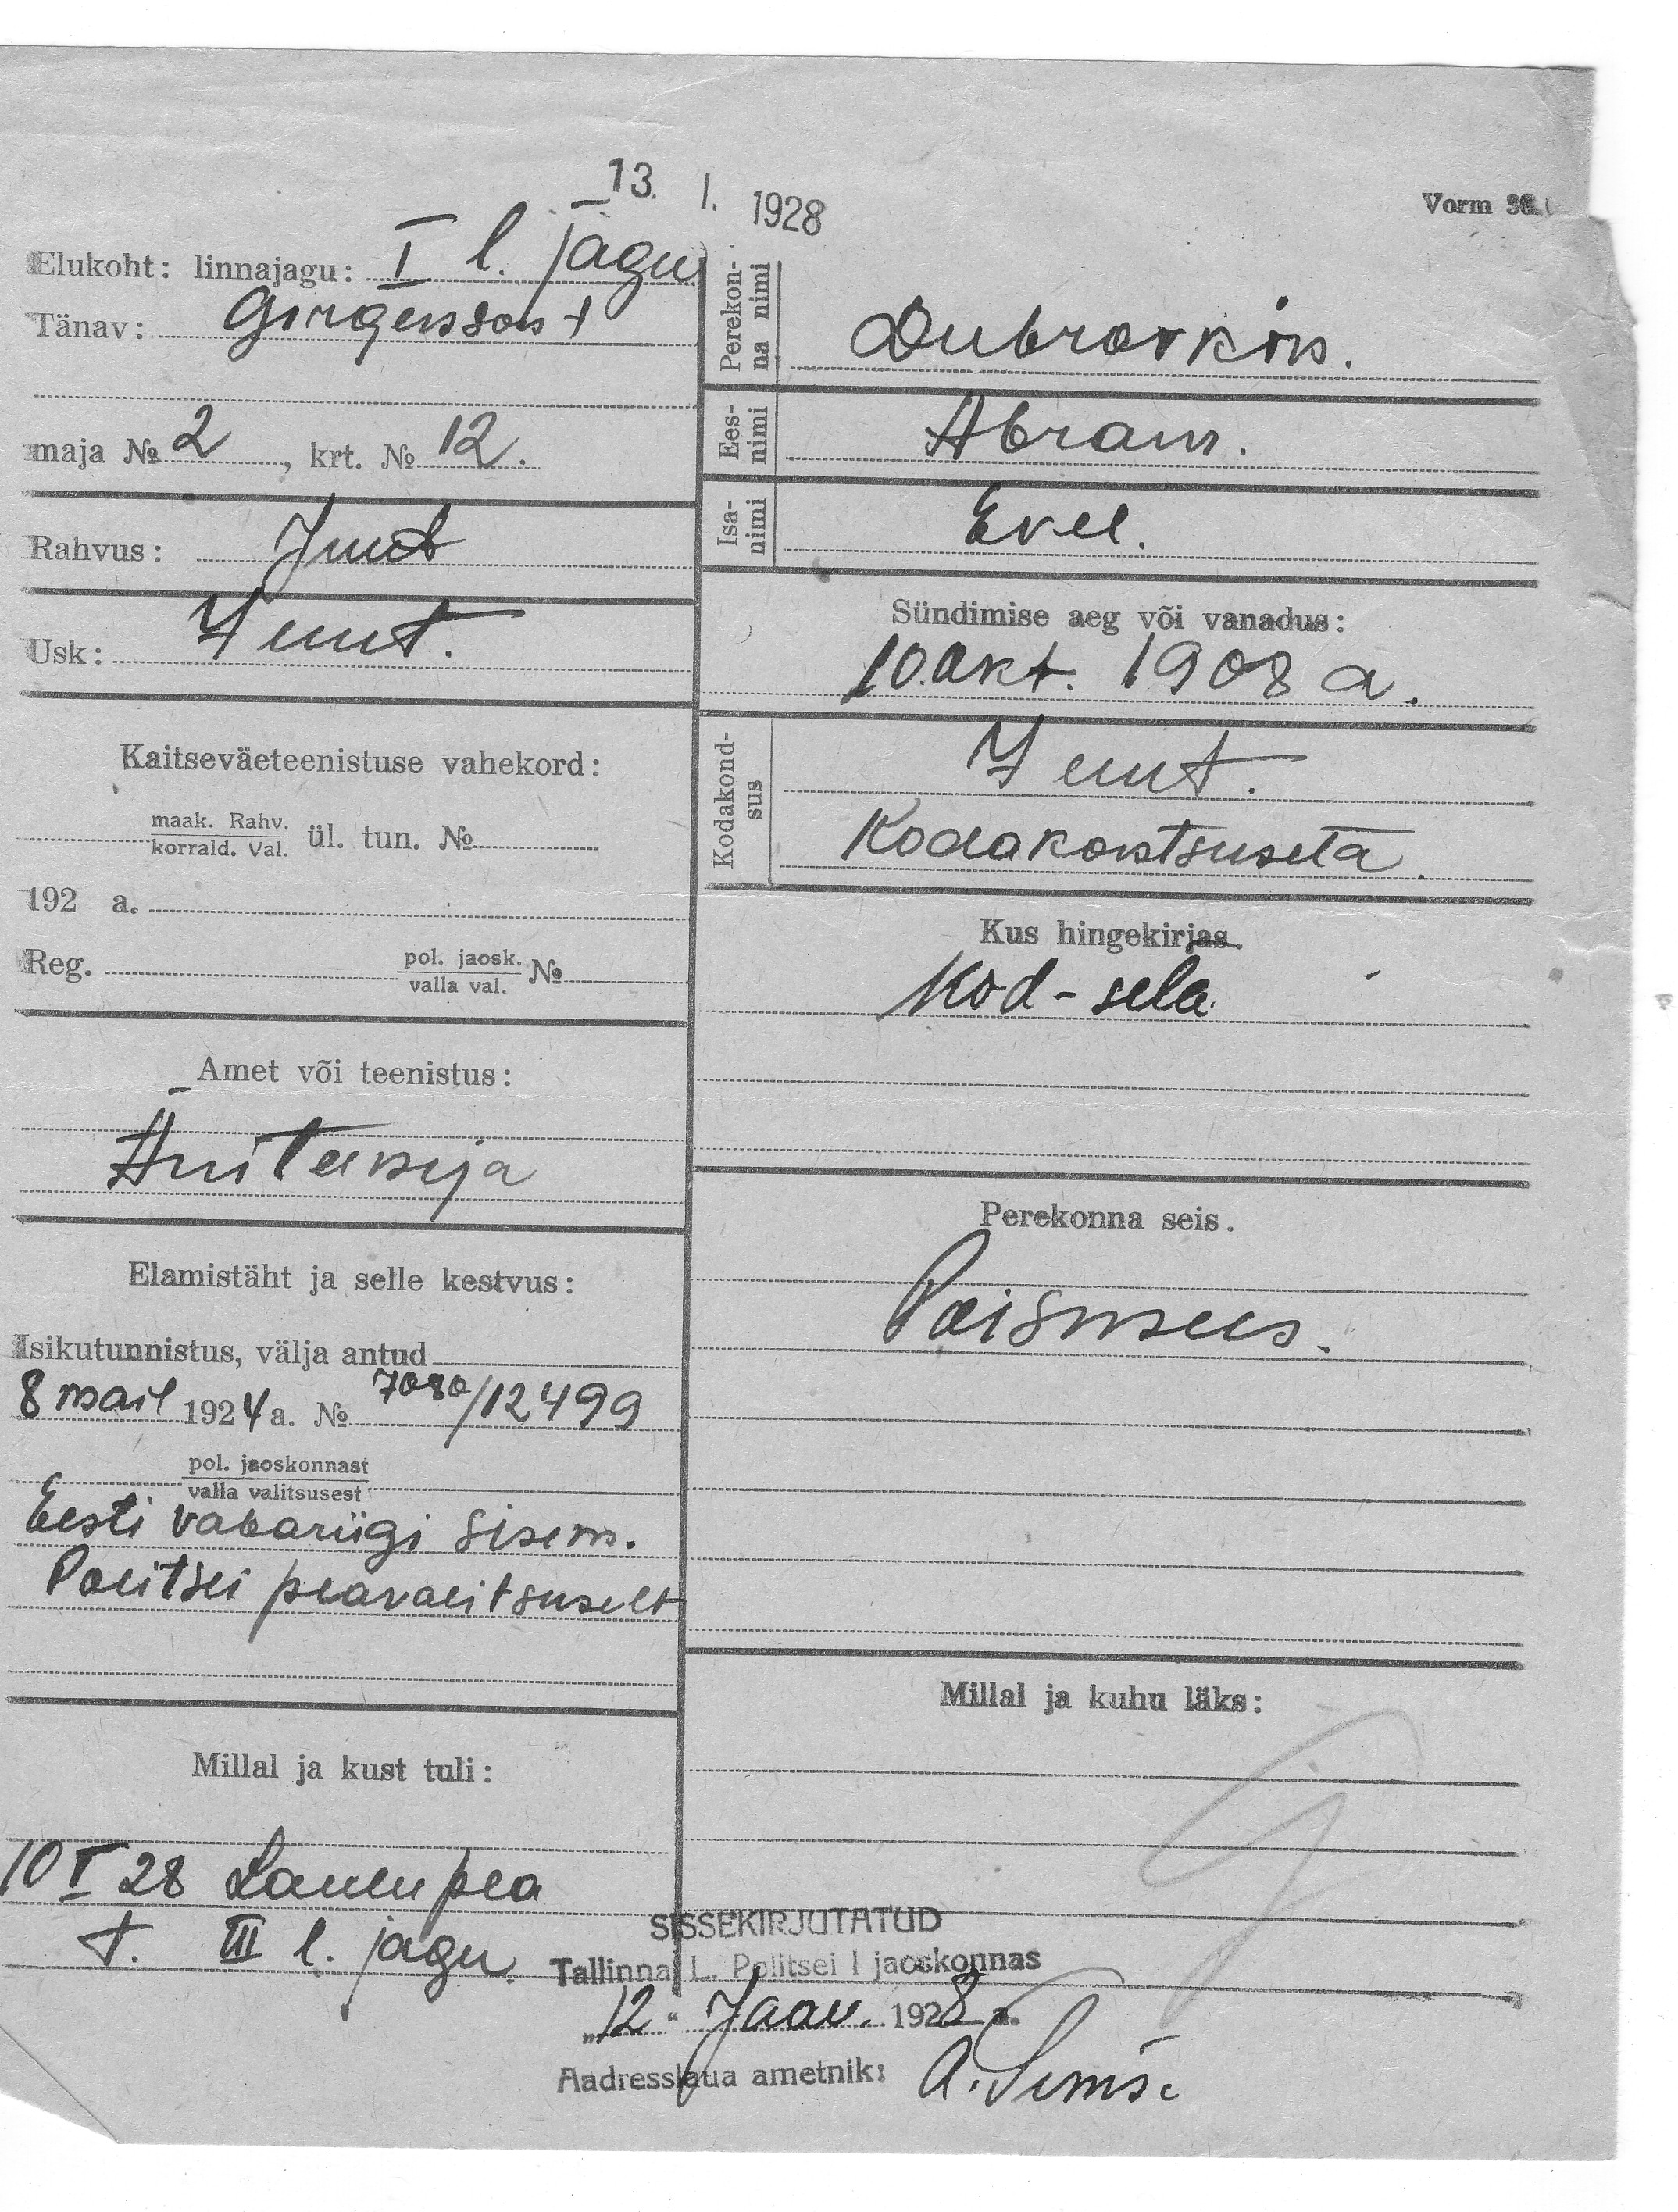 13. I. 1928
Vorm 36.
Elukoht: linnajagu: I l. jagu
Tänav: Girgensson t
maja № 2, krt. № 12.
Rahvus: Juut
Usk: Juut.
Kaitseväeteenistuse vahekord:
maak. Rahv.
korrald. Val. ül. tun. №
192 a.
Reg. pol. jaosk. №
valla val.
Amet või teenistus:
Äriteenija
Elamistäht ja selle kestvus:
Isikutunnistus, välja antud
8 mail 1924 a. № 7080/12499
pol. jaoskonnast
valla valitsusest
Eesti vabariigi sisem.
Politsei peavalitsuselt
Millal ja kust tuli:
10 I 28 Laulupea
t. III l. jagu.
Perekonna nimi
Dubrovkin.
Eesnimi
Abram.
Isanimi
Evel.
Sündimise aeg või vanadus:
10. okt. 1908 a.
Kodakondsus
Juut.
Kodakontsuseta.
Kus hingekirjas.
Kod-seta
Perekonna seis.
Poismees.
Millal ja kuhu läks:
SISSEKIRJUTATUD
Tallinna L. Politsei I jaoskonnas
„12" Jaan. 1928 a.
Aadresslaua ametnik: